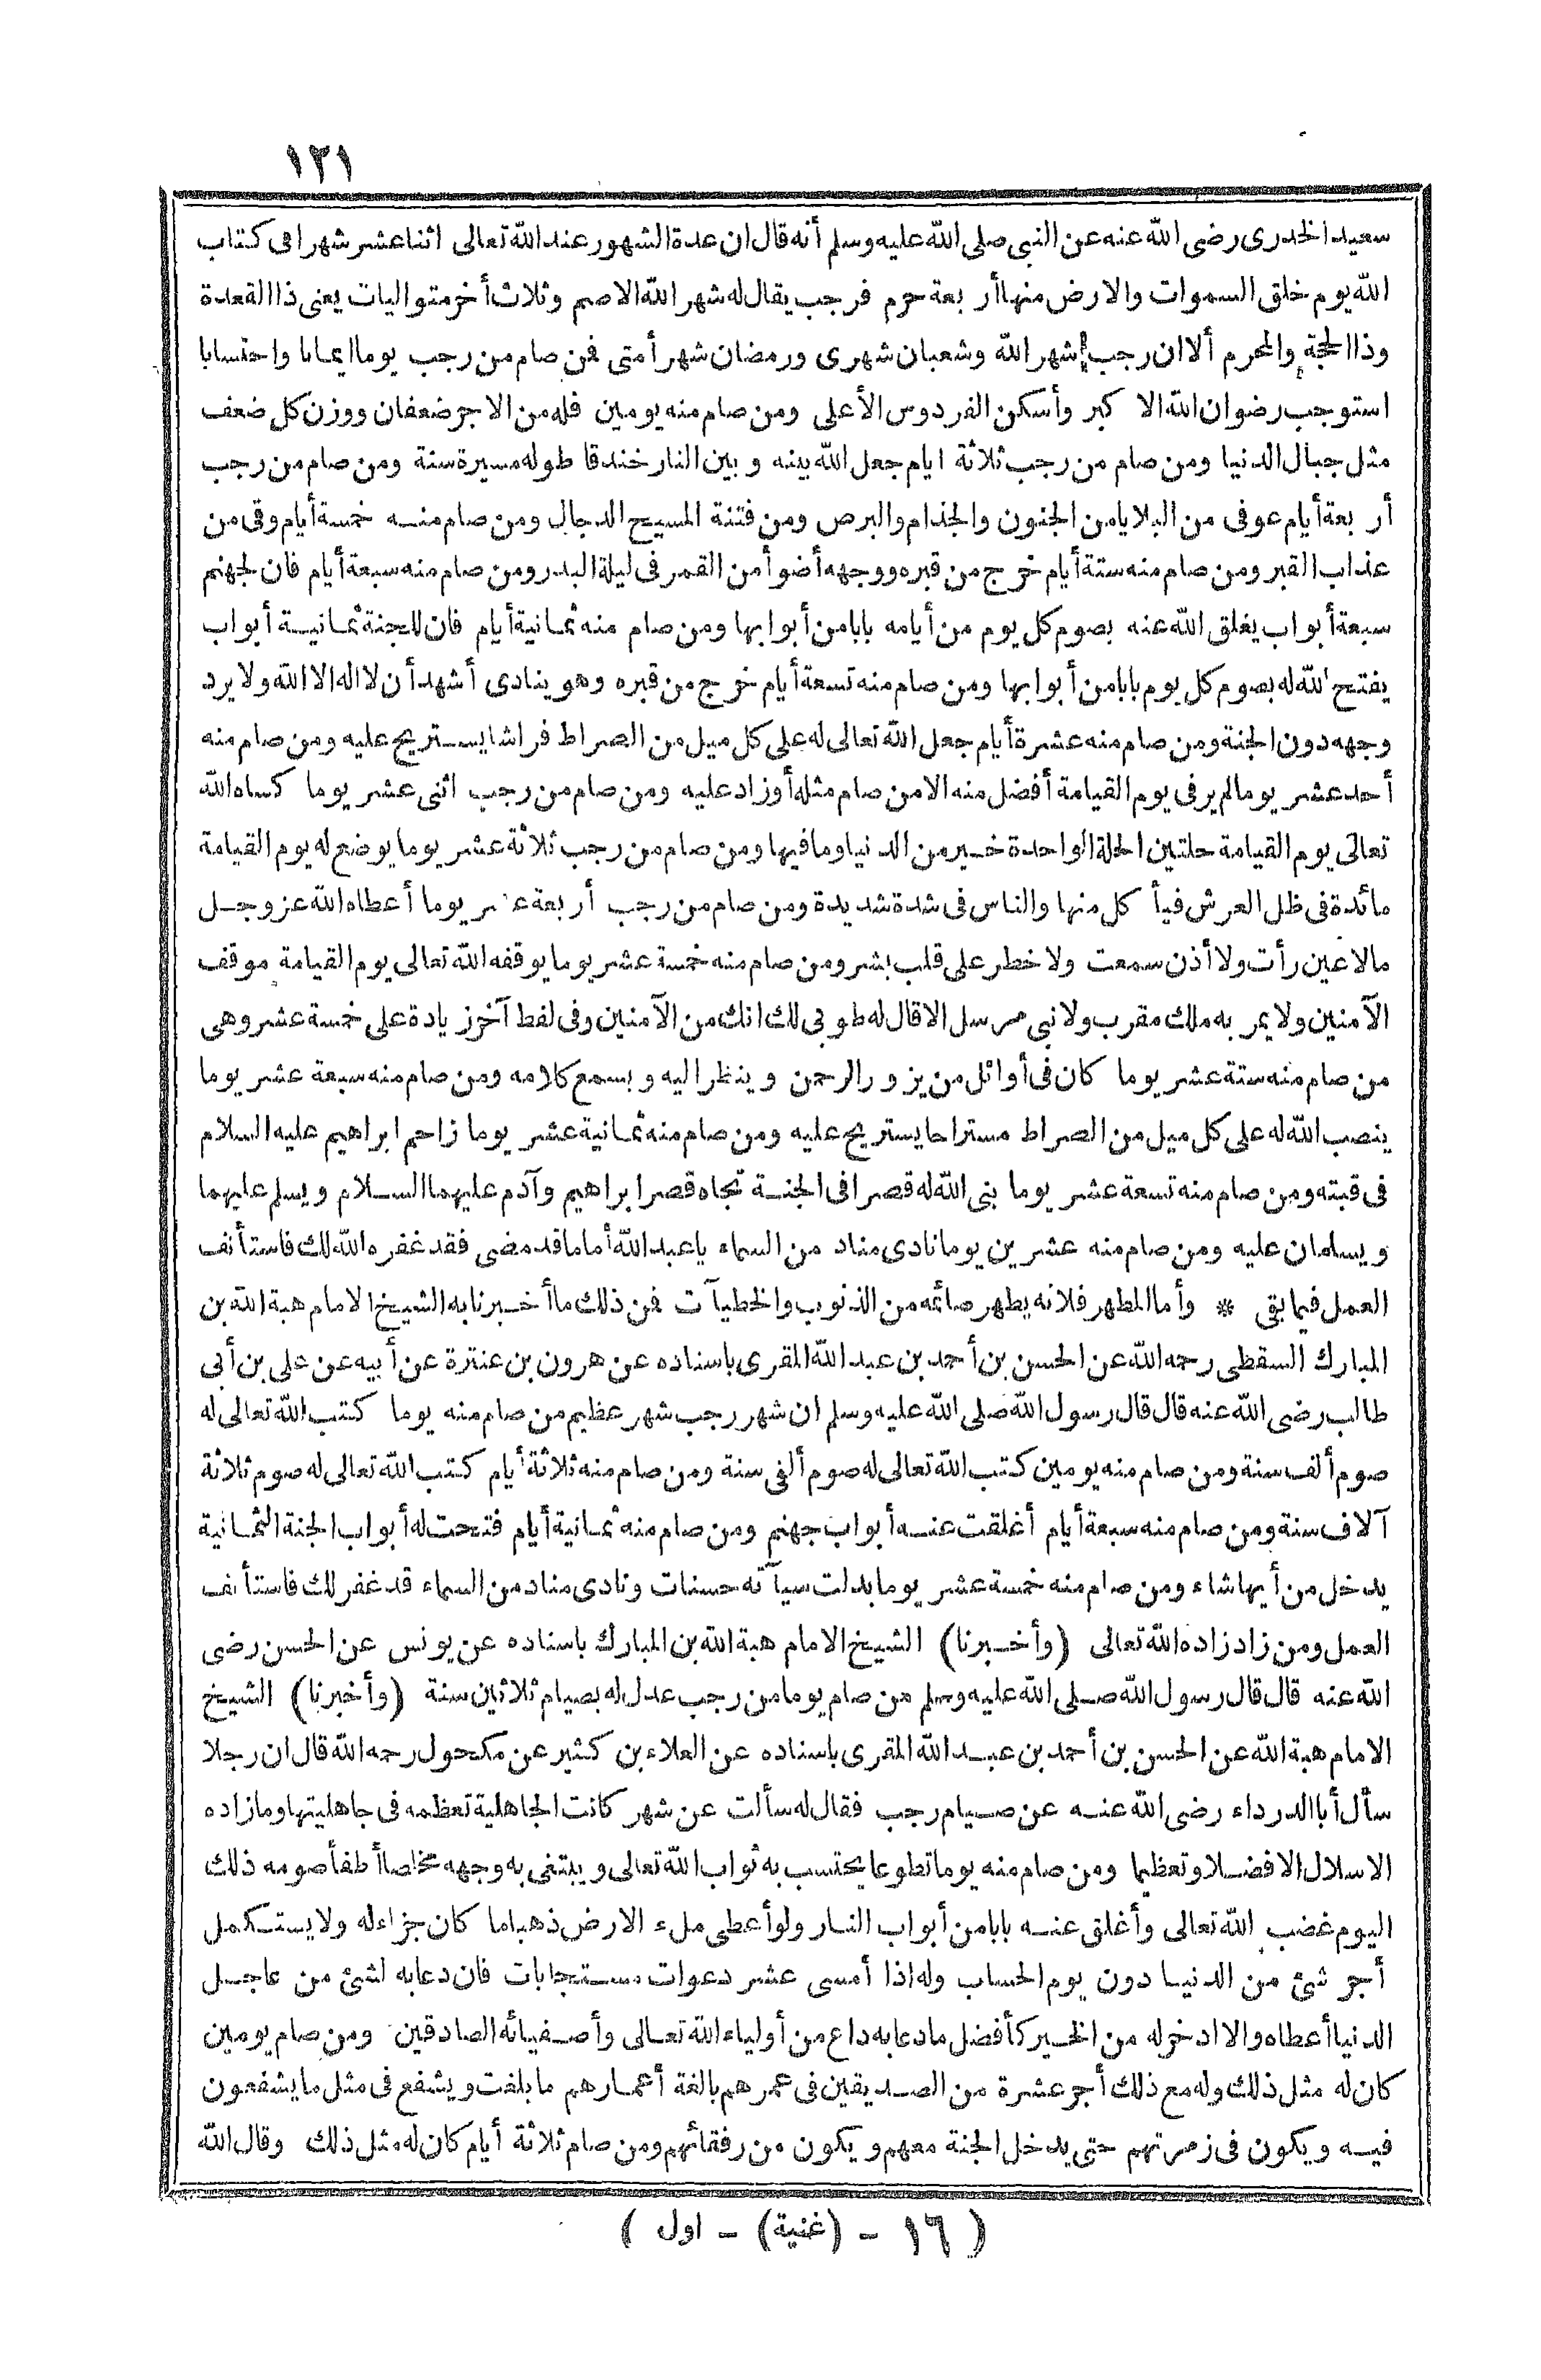 ١٢١
سعيد الخدرى رضى الله عنه عن النبى صلى الله عليه وسلم أنه قال ان عدة الشهور عند الله تعالى اثنا عشر شهرا فى كتاب
الله يوم خلق السموات والارض منها أربعة حرم فرجب يقال له شهر الله الاصم وثلاث أخر متواليات يعنى ذا القعدة
وذا الحجة والمحرم ألا ان رجب شهر الله وشعبان شهرى ورمضان شهر أمتى فمن صام من رجب يوما ايمانا واحتسابا
استوجب رضوان الله الاكبر وأسكن الفردوس الأعلى ومن صام منه يومين فله من الاجر ضعفان ووزن كل ضعف
مثل جبال الدنيا ومن صام من رجب ثلاثة ايام جعل الله بينه وبين النار خندقا طوله مسيرة سنة ومن صام من رجب
أربعة أيام عوفى من البلايا من الجنون والجذام والبرص ومن فتنة المسيح الدجال ومن صام منه خمسة أيام وقى من
عذاب القبر ومن صام منه ستة أيام خرج من قبره ووجهه أضوأ من القمر فى ليلة البدر ومن صام منه سبعة أيام فان لجهنم
سبعة أبواب يغلق الله عنه بصوم كل يوم من أيامه بابا من أبوابها ومن صام منه ثمانية أيام فان للجنة ثمانية أبواب
يفتح الله له بصوم كل يوم بابا من أبوابها ومن صام منه تسعة أيام خرج من قبره وهو ينادى أشهد أن لا اله الا الله ولا يرد
وجهه دون الجنة ومن صام منه عشرة أيام جعل الله تعالى له على كل ميل من الصراط فراشا يستريح عليه ومن صام منه
أحد عشر يوما لم ير فى يوم القيامة أفضل منه الا من صام مثله أو زاد عليه ومن صام من رجب اثنى عشر يوما كساه الله
تعالى يوم القيامة حلتين الحلة الواحدة خير من الدنيا وما فيها ومن صام من رجب ثلاثة عشر يوما يوضع له يوم القيامة
مائدة فى ظل العرش فيأكل منها والناس فى شدة شديدة ومن صام من رجب أربعة عشر يوما أعطاه الله عز وجل
مالا عين رأت ولا أذن سمعت ولا خطر على قلب بشر ومن صام منه خمسة عشر يوما يوقفه الله تعالى يوم القيامة موقف
الآمنين ولا يمر به ملك مقرب ولا نبى مرسل الا قال له طوبى لك انك من الآمنين وفى لفظ آخر زيادة على خمسة عشر وهى
من صام منه ستة عشر يوما كان فى أوائل من يزور الرحمن وينظر اليه ويسمع كلامه ومن صام منه سبعة عشر يوما
ينصب الله له على كل ميل من الصراط مستراحا يستريح عليه ومن صام منه ثمانية عشر يوما زاحم ابراهيم عليه السلام
فى قبته ومن صام منه تسعة عشر يوما بنى الله له قصرا فى الجنة تجاه قصر ابراهيم وآدم عليهما السلام ويسلم عليهما
ويسلمان عليه ومن صام منه عشرين يوما نادى مناد من السماء يا عبد الله أما ما قد مضى فقد غفره الله لك فاستأنف
العمل فيما بقى * وأما المطهر فلانه يطهر صائمه من الذنوب والخطيآت فمن ذلك ما أخبرنا به الشيخ الامام هبة الله بن
المبارك السقطى رحمه الله عن الحسن بن أحمد بن عبد الله المقرى باسناده عن هرون بن عنترة عن أبيه عن على بن أبى
طالب رضى الله عنه قال قال رسول الله صلى الله عليه وسلم ان شهر رجب شهر عظيم من صام منه يوما كتب الله تعالى له
صوم ألف سنة ومن صام منه يومين كتب الله تعالى له صوم ألفى سنة ومن صام منه ثلاثة أيام كتب الله تعالى له صوم ثلاثة
آلاف سنة ومن صام منه سبعة أيام أغلقت عنه أبواب جهنم ومن صام منه ثمانية أيام فتحت له أبواب الجنة الثمانية
يدخل من أيها شاء ومن صام منه خمسة عشر يوما بدلت سيآته حسنات ونادى مناد من السماء قد غفر لك فاستأنف
العمل ومن زاد زاده الله تعالى (وأخبرنا) الشيخ الامام هبة الله بن المبارك باسناده عن يونس عن الحسن رضى
الله عنه قال قال رسول الله صلى الله عليه وسلم من صام يوما من رجب عدل له بصيام ثلاثين سنة (وأخبرنا) الشيخ
الامام هبة الله عن الحسن بن أحمد بن عبد الله المقرى باسناده عن العلاء بن كثير عن مكحول رحمه الله قال ان رجلا
سأل أبا الدرداء رضى الله عنه عن صيام رجب فقال له سألت عن شهر كانت الجاهلية تعظمه فى جاهليتها وما زاده
الاسلال الا فضلا وتعظيما ومن صام منه يوما تطوعا يحتسب به ثواب الله تعالى ويبتغى به وجهه مخلصا أطفأ صومه ذلك
اليوم غضب الله تعالى وأغلق عنه بابا من أبواب النار ولو أعطى ملء الارض ذهبا ما كان جزاء له ولا يستكمل
أجر شئ من الدنيا دون يوم الحساب وله اذا أمسى عشر دعوات مستجابات فان دعا به لشئ من عاجل
الدنيا أعطاه والا ادخر له من الخير كأفضل ما دعا به داع من أولياء الله تعالى وأصفيائه الصادقين ومن صام يومين
كان له مثل ذلك وله مع ذلك أجر عشرة من الصديقين فى عمرهم بالغة أعمارهم ما بلغت ويشفع فى مثل ما يشفعون
فيه ويكون فى زمرتهم حتى يدخل الجنة معهم ويكون من رفقائهم ومن صام ثلاثة أيام كان له مثل ذلك وقال الله
( ١٦ - (غنية) - اول )